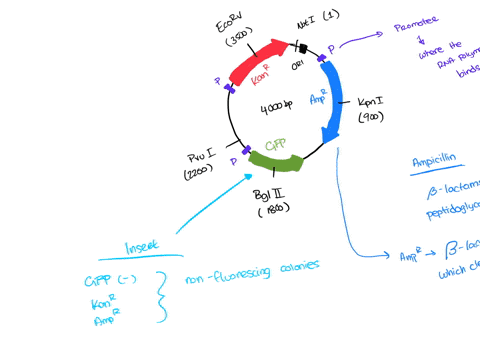 EcoRV
(3500)
NotI (1)
P
Promoter
where the
RNA polym
binds
ORI
Kan^R
P
4000bp
Amp^R
KpnI
(900)
PvuI
(2200)
P
GFP
BglII
(1800)
Ampicillin
β-lactam
peptidoglyc
Insert
GFP (-)
Kan^R
Amp^R
non-fluorescing colonies
Amp^R → β-lac
which cl